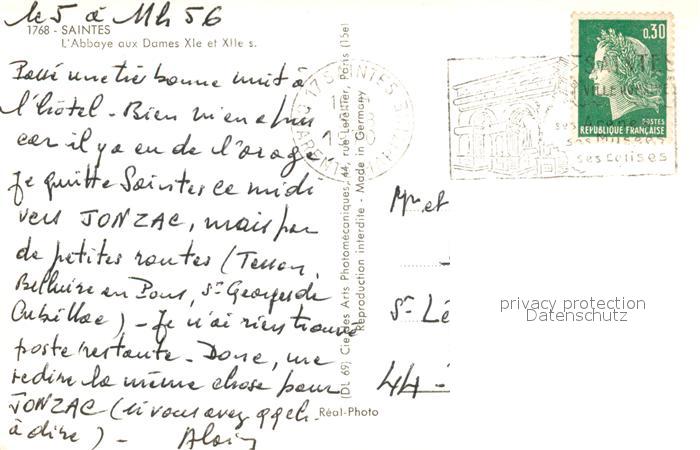 le 5 à 11h 56
1768 - SAINTES
L'Abbaye aux Dames XIe et XIIe s.
Passé une très bonne nuit à
l'hôtel. Bien m'en a pris
car il y a eu de l'orage.
Je quitte Saintes ce midi
vers JONZAC, mais par
de petites routes (Tesson,
Belluire en Pons, St Georges de
Cubillac) - Je n'ai rien trouvé
poste restante. Donc, me
redire la même chose pour
JONZAC (si vous avez qqch.
à dire) - Alain
Réal-Photo
(DL 69) Cie des Arts Photomécaniques, 44, rue Letellier, Paris (15e)
Reproduction interdite - Made in Germany
17 SAINTES
0,30
POSTES
REPUBLIQUE FRANÇAISE
ses musées
ses églises
Mr et
St Lé
44 -
privacy protection
Datenschutz